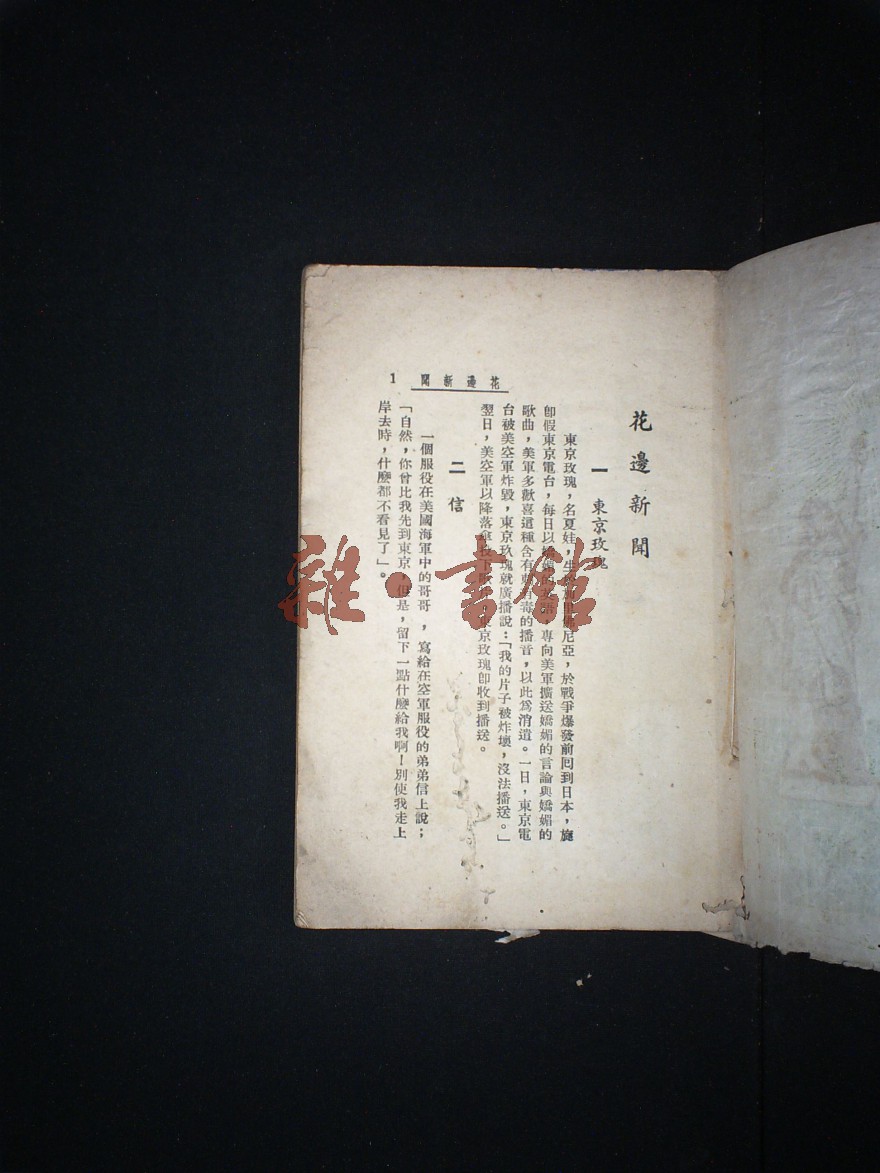 花邊新聞
一 東京玫瑰
東京玫瑰，名夏娃，生於加里佛尼亞，於戰爭爆發前回到日本，旋
卽假東京電台，每日以嬌媚的英語，專向美軍擴送嬌媚的言論與嬌媚的
歌曲，美軍多歡喜這種含有 毒的播音，以此爲消遣。一日，東京電
台被美空軍炸毀，東京玫瑰就廣播說：「我的片子被炸壞，沒法播送。」
翌日，美空軍以降落傘投下 東京玫瑰卽收到播送。
二 信
一個服役在美國海軍中的哥哥，寫給在空軍服役的弟弟信上說；
「自然，你曾比我先到東京，但是，留下一點什麼給我啊！別使我走上
岸去時，什麼都不看見了」。
花邊新聞 1
雜·書館